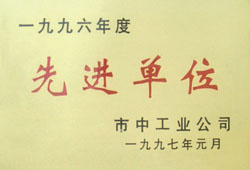 一九九六年度
先进单位
市中工业公司
一九九七年元月